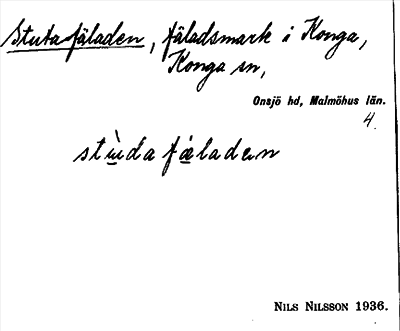 Stutafäladen, fäladsmark i Konga,
Konga sn,
Onsjö hd, Malmöhus län.
4.
stùda fäladen
NILS NILSSON 1936.